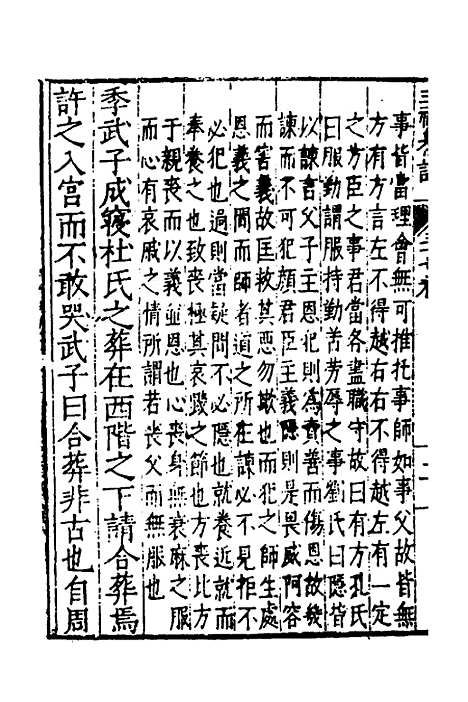 事皆當理會無可推托事師如事父故皆無
方有方言左不得越右右不得越左有一定
之方臣之事君當各盡職守故曰有方孔氏
曰服勤謂服持勤苦勞辱之事劉氏曰隱皆
以諫言父子主恩犯則為責善而傷恩故幾
諫而不可犯顔君臣主義隱則是畏威阿容
而害義故匡救其惡勿欺也而犯之師生處
恩義之間而師者道之所在諫必不見拒不
必犯也過則當疑問不必隱也就養近就而
奉養之也致喪極其哀毀之節也方喪比方
于親喪而以義並恩也心喪身無衰麻之服
而心有哀戚之情所謂若喪父而無服也
季武子成寢杜氏之葬在西階之下請合葬焉
許之入宮而不敢哭武子曰合葬非古也自周